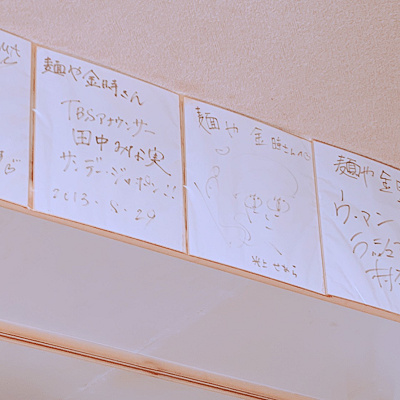 麺や金時さん
TBSアナウンサー
田中みな実
サンデー・ジャポン!!
2013・8・29
麺や 金時さんへ
光上せあら
麺や金
ウーマン
ラッシュ
村